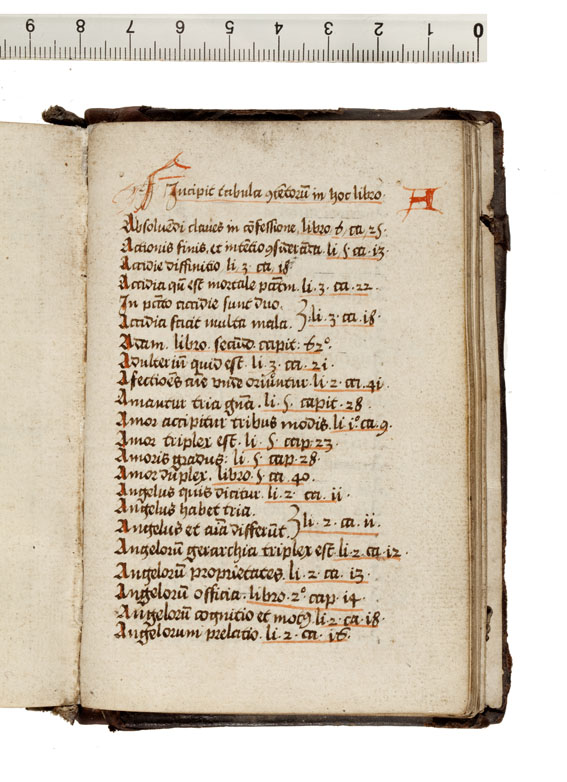 9 8 7 6 5 4 3 2 1 0
Incipit tabula ꝯtētorū in hoc libro
A
Absoluendi claues in cōfessione. libro 6. ca. 25.
Actionis finis, et intētio ꝯsiderāda. li. 5. ca. 13
Accidie diffinitio. li. 3. ca. 18
Accidia qñ est mortale pctm̄. li. 3. ca. 22.
In pctō accidie sunt duo.
Accidia facit multa mala. li. 3. ca. 18.
Adam. libro. secūdo. capit. 62º.
Adulteriū quid est. li. 3. ca. 21.
Afectioēs aīe vnde oriūntur. li. 2. ca. 41.
Amantur tria gn̄a. li. 5. capit. 28.
Amor accipitur tribus modis. li. iº. ca. 9.
Amor triplex est. li. 5. cap. 23.
Amoris gradus. li. 5. cap. 28.
Amor duplex. libro. 5. ca. 40.
Angelus quis dicitur. li. 2. ca. ii.
Angelus habet tria.
Angelus et aīa differūt. li. 2. ca. ii.
Angelorū gerarchia triplex est. li. 2. ca. 12.
Angelorū proprietates. li. 2. ca. 13.
Angelorū officia. libro. 2º. cap. 14.
Angelorū cognitio et motꝰ. li. 2. ca. 18.
Angelorum prelatio. li. 2. ca. 16.